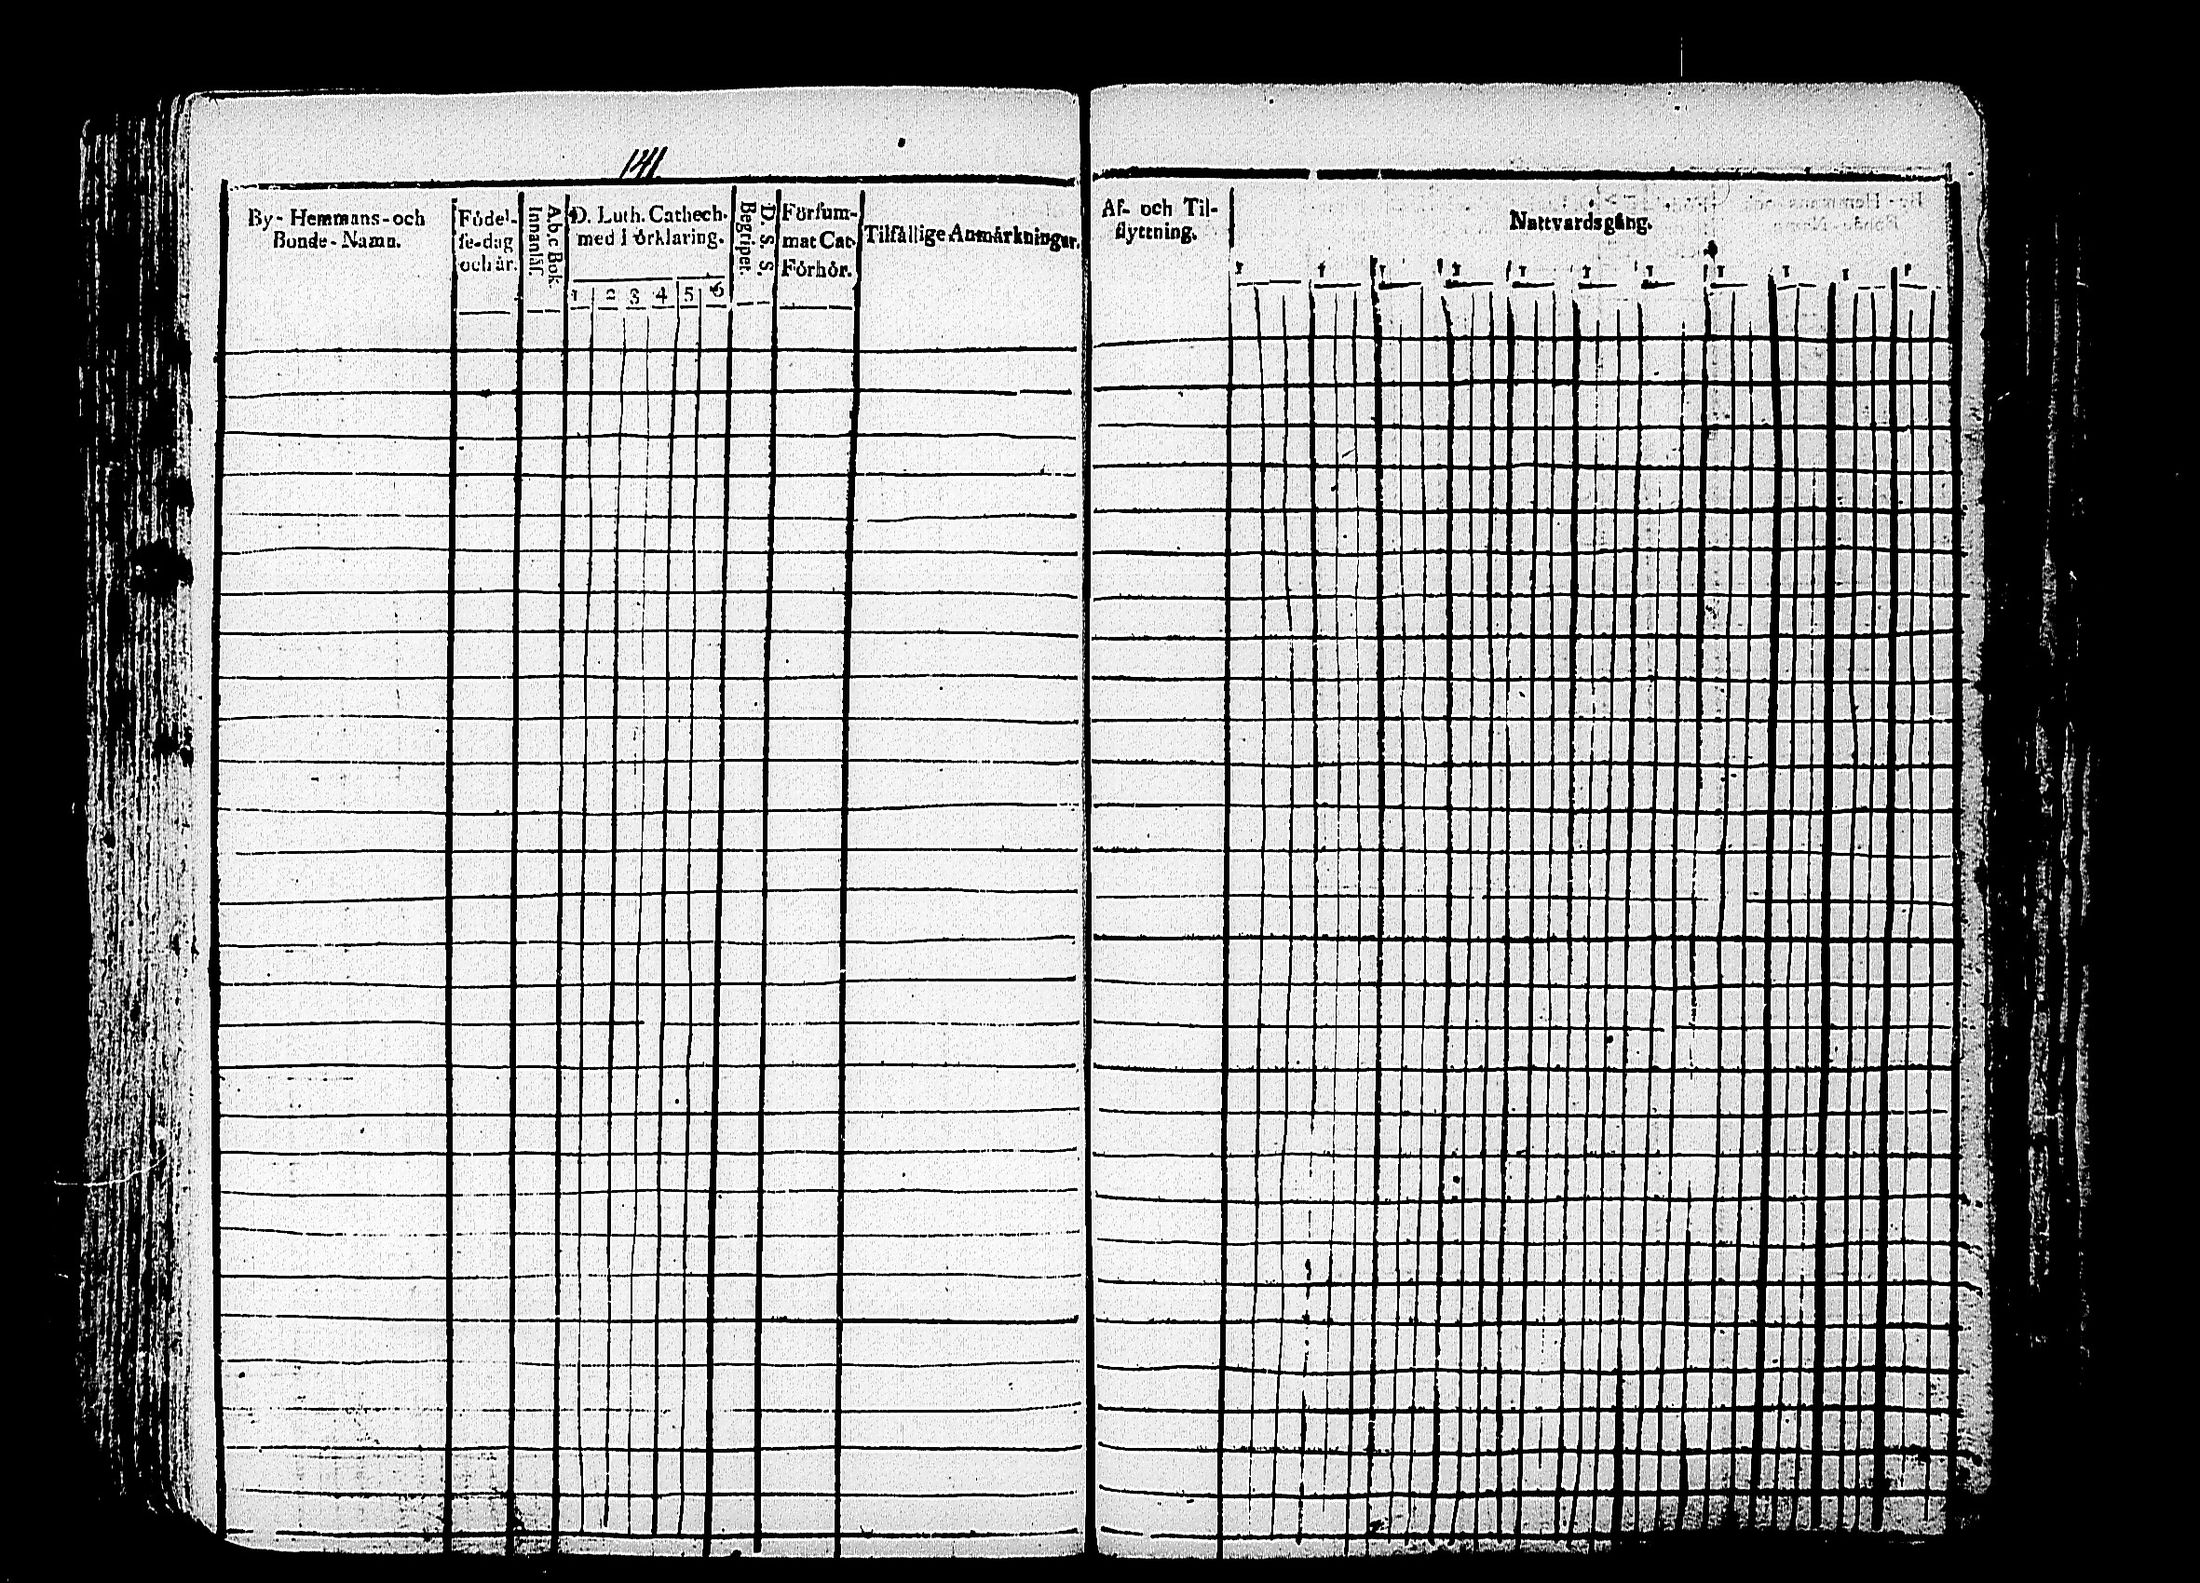 141
By- Hemmans- och
Bonde- Namn.
Födel-
se-dag
och år.
A.b.c Bok.
Innanläs.
D. Luth. Cathech.
med Förklaring.
1 2 3 4 5 6
D. S. S.
Begripet.
Försum-
mat Cat.
Förhör.
Tilfällige Anmärkningar.
Af- och Til-
flyttning.
Nattvardsgång.
1 1 1 1 1 1 1 1 1 1 1